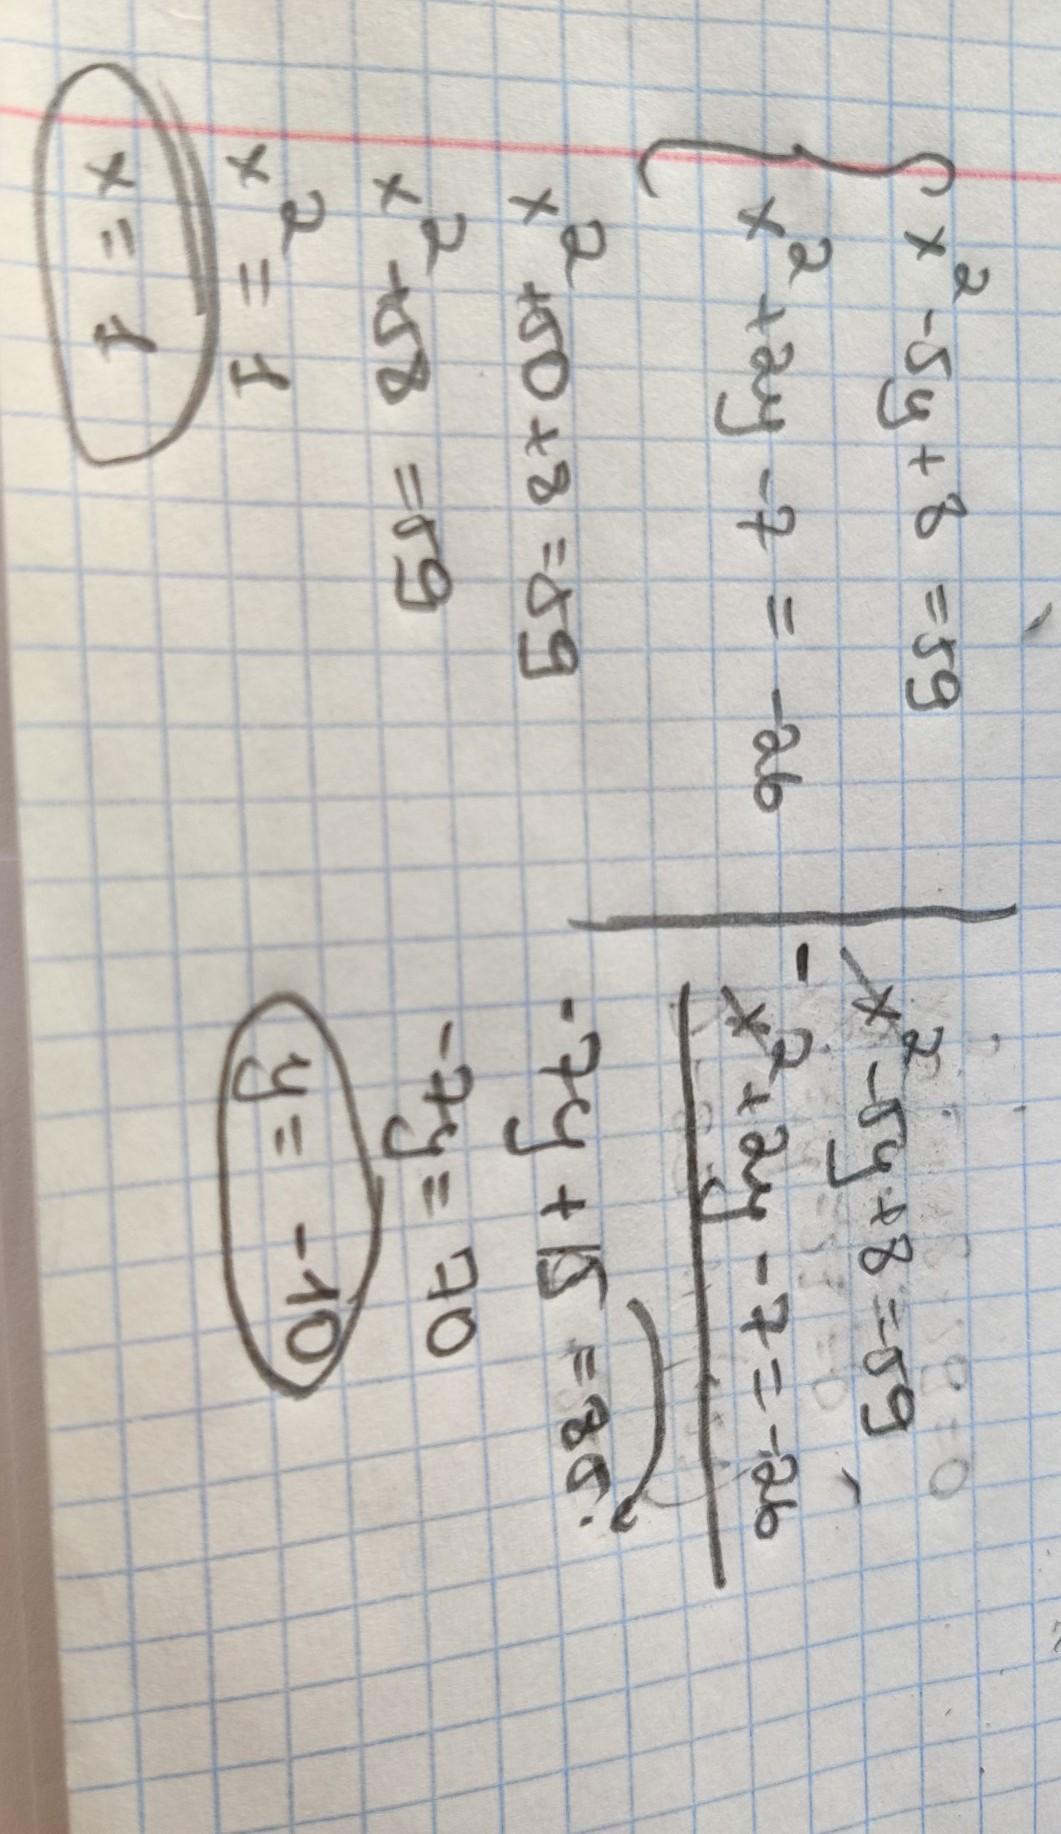 x² - 5y + 8 = 59
x² + 2y - 7 = -26
x² + 50 + 8 = 59
x² + 58 = 59
x² = 1
x = 1
x² - 5y + 8 = 59
- x² + 2y - 7 = -26
-7y + 15 = 85
-7y = 70
y = -10